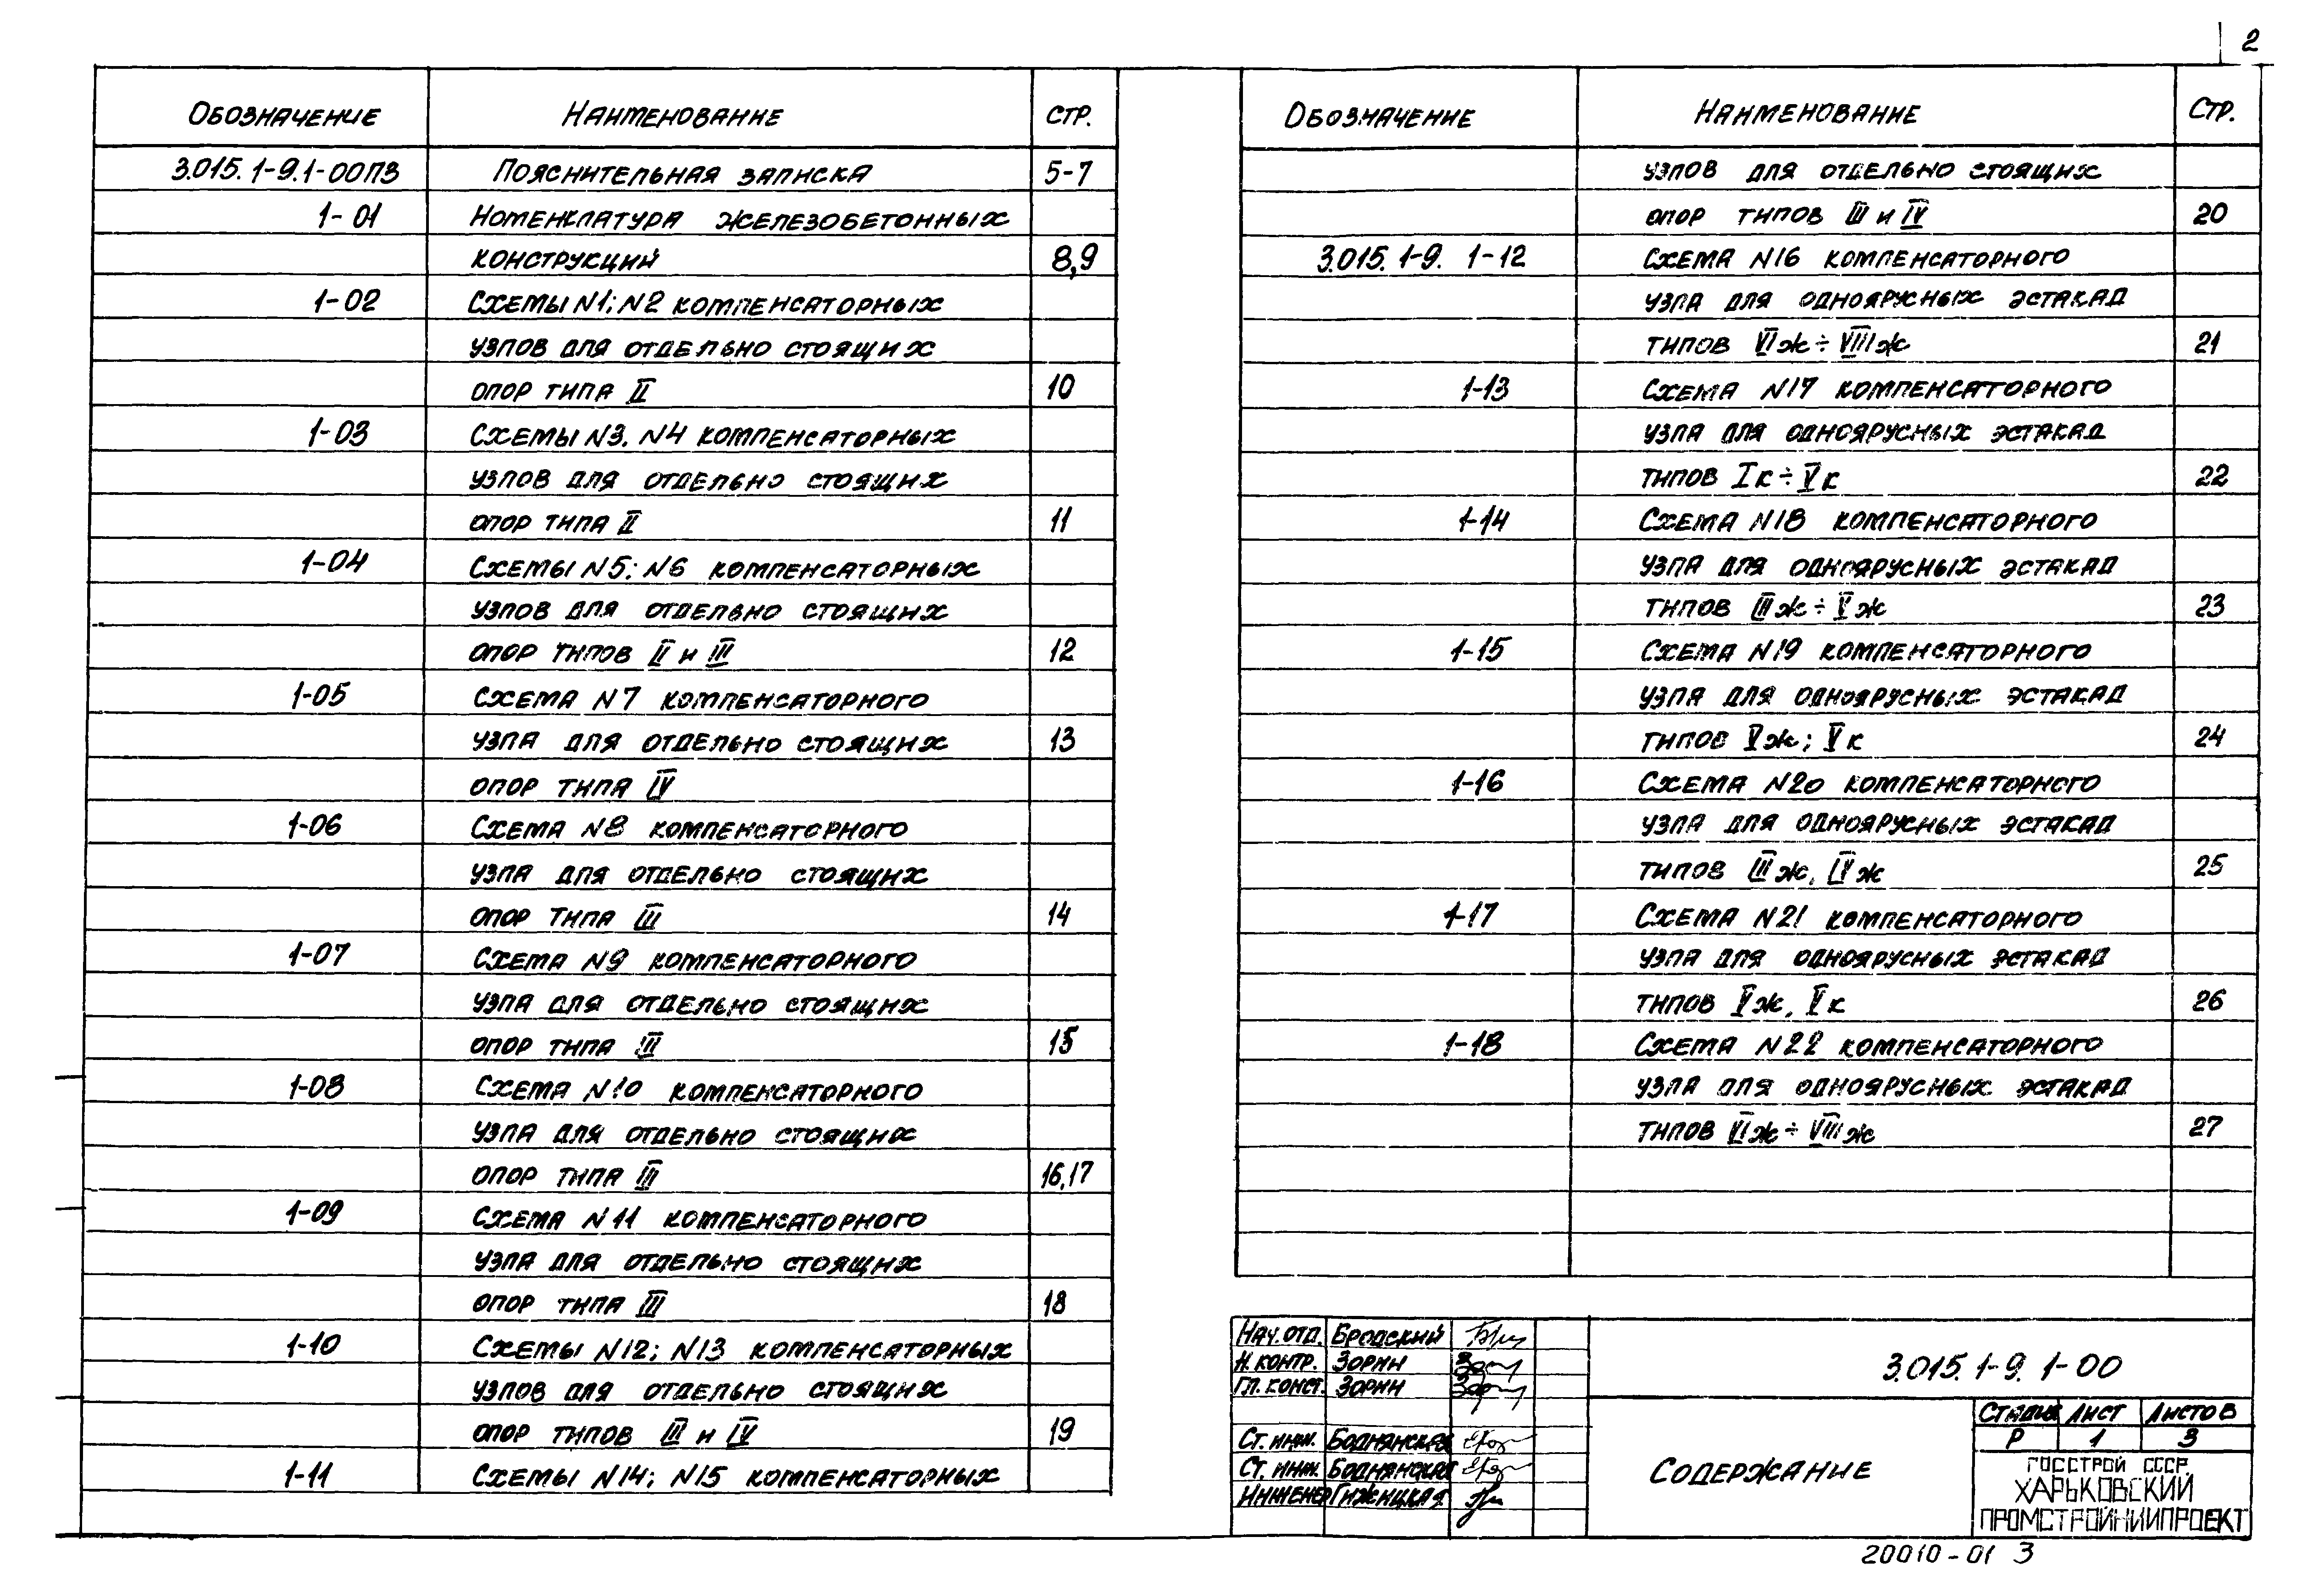 2
Обозначение Наименование Стр.
3.015.1-9.1-00ПЗ Пояснительная записка 5-7
1-01 Номенклатура железобетонных
конструкций 8,9
1-02 Схемы N1; N2 компенсаторных
узлов для отдельно стоящих
опор типа II 10
1-03 Схемы N3, N4 компенсаторных
узлов для отдельно стоящих
опор типа II 11
1-04 Схемы N5; N6 компенсаторных
узлов для отдельно стоящих
опор типов II и III 12
1-05 Схема N7 компенсаторного
узла для отдельно стоящих 13
опор типа IV
1-06 Схема N8 компенсаторного
узла для отдельно стоящих
опор типа III 14
1-07 Схема N9 компенсаторного
узла для отдельно стоящих
опор типа III 15
1-08 Схема N10 компенсаторного
узла для отдельно стоящих
опор типа III 16,17
1-09 Схема N11 компенсаторного
узла для отдельно стоящих
опор типа III 18
1-10 Схемы N12; N13 компенсаторных
узлов для отдельно стоящих
опор типов III и IV 19
1-11 Схемы N14; N15 компенсаторных
Обозначение Наименование Стр.
узлов для отдельно стоящих
опор типов III и IV 20
3.015.1-9. 1-12 Схема N16 компенсаторного
узла для одноярусных эстакад
типов VIж ÷ VIIIж 21
1-13 Схема N17 компенсаторного
узла для одноярусных эстакад
типов Iк ÷ Vк 22
1-14 Схема N18 компенсаторного
узла для одноярусных эстакад
типов IIIж ÷ Vж 23
1-15 Схема N19 компенсаторного
узла для одноярусных эстакад
типов Vж; Vк 24
1-16 Схема N20 компенсаторного
узла для одноярусных эстакад
типов IIIж, IVж 25
1-17 Схема N21 компенсаторного
узла для одноярусных эстакад
типов Vж, Vк 26
1-18 Схема N22 компенсаторного
узла для одноярусных эстакад
типов VIж ÷ VIIIж 27
Нач.отд. Бродский
Н.контр. Зорин
Гл.конст. Зорин
Ст. инж. Боднянская
Ст. инж. Боднянская
Инженер Гижицкая
3.015.1-9. 1-00
Содержание
Стадия Лист Листов
Р 1 3
ГОССТРОЙ СССР
ХАРЬКОВСКИЙ
ПРОМСТРОЙНИИПРОЕКТ
20010-01 3